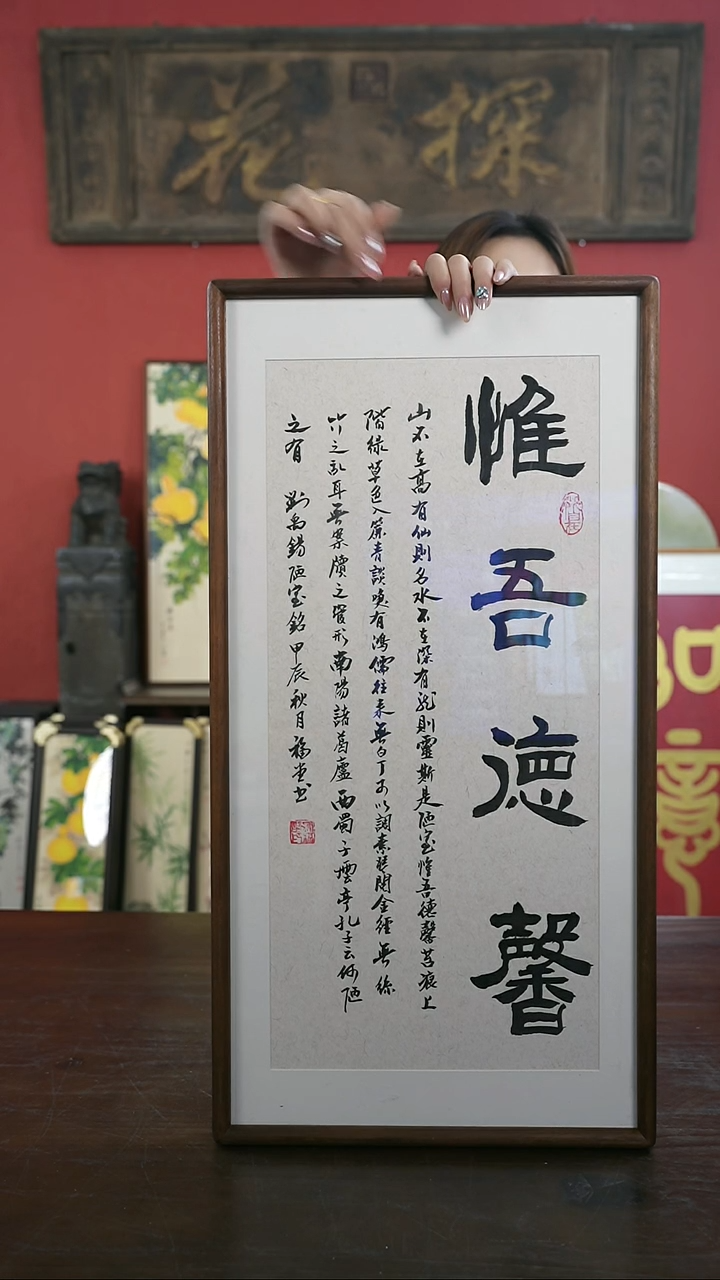 探花
惟吾德馨
山不在高有仙則名水不在深有龍則靈斯是陋室惟吾德馨苔痕上
階綠草色入簾青談笑有鴻儒往來無白丁可以調素琴閱金經無絲
竹之亂耳無案牘之勞形南陽諸葛廬西蜀子雲亭孔子云何陋
之有 劉禹錫陋室銘甲辰秋月福堂书
如意